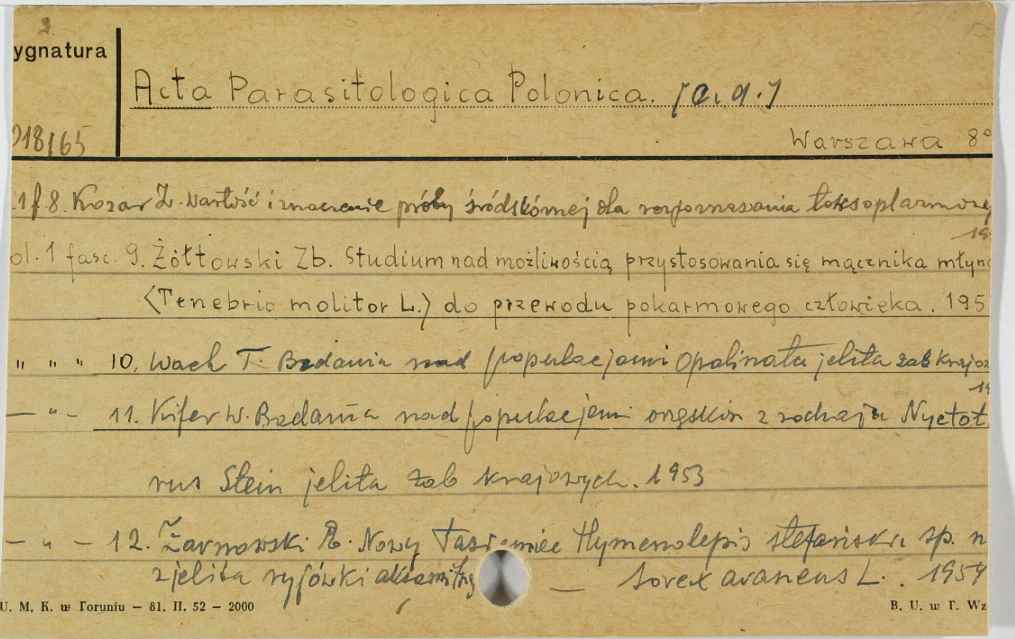 2
ygnatura
Acta Parasitologica Polonica. /c.d./
018165
Warszawa 8°
1 f. 8. Kozar Z. Wartość i znaczenie próby śródskórnej dla rozpoznawania toksoplazmozy
19
ol. 1 fasc. 9. Żółtowski Zb. Studium nad możliwością przystosowania się mącznika młyna
(Tenebrio molitor L.) do przewodu pokarmowego człowieka. 195
" " " 10. Wach T. Badania nad populacjami Opalinata jelita żab krajo
19
— " — 11. Kifer W. Badania nad populacjami orzęsków z rodzaju Nyctot
rus Stein jelita żab krajowych. 1953
— " — 12. Żarnowski E. Nowy Tasiemiec Hymenolepis stefański sp. n
z jelita ryjówki aksamitnej — Sorex araneus L. . 1954
U. M. K. w Toruniu — 81. II. 52 — 2000
B. U. w T. Wz